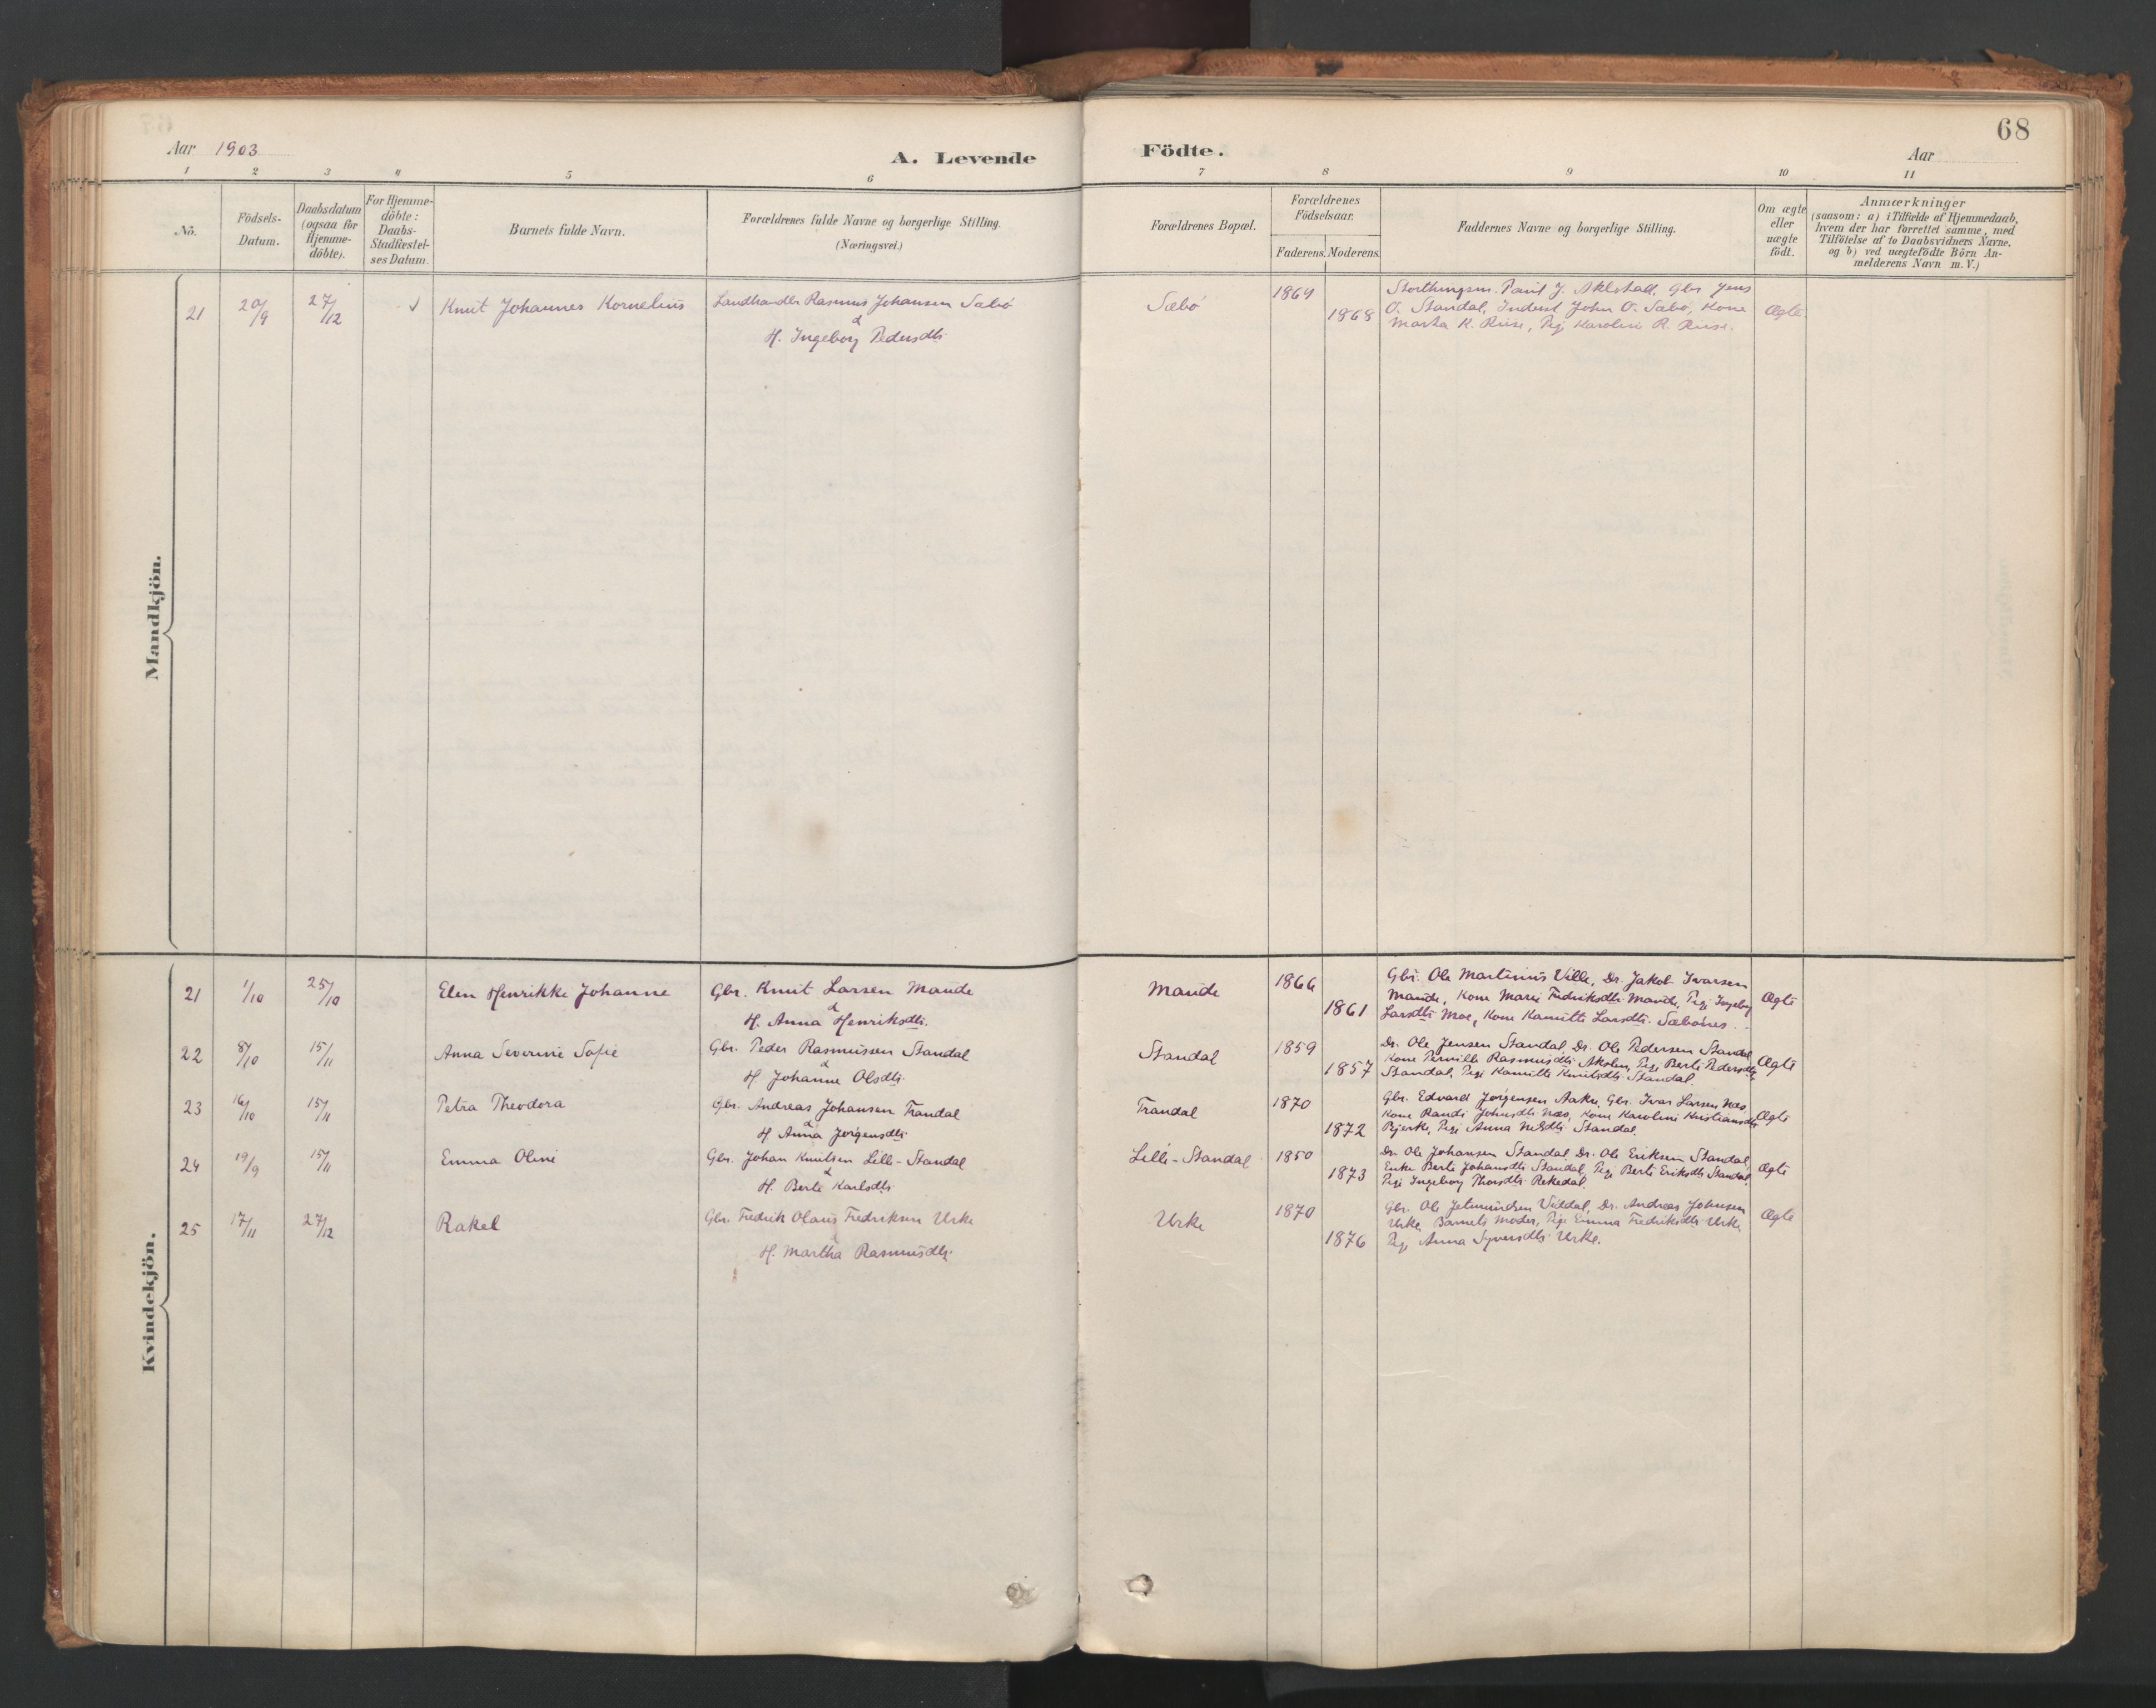 68
Aar 1903
A. Levende Födte.
Aar
1 2 3 4 5 6 7 8 9 10 11
No.
Födsels-
Datum.
Daabsdatum
(ogsaa for
Hjemme-
döbte).
For Hjemme-
döbte:
Daabs-
Stadfæstel-
ses Datum.
Barnets fulde Navn.
Forældrenes fulde Navne og borgerlige Stilling.
(Næringsvei.)
Forældrenes Bopæl.
Forældrenes
Födselsaar.
Faderens. Moderens.
Faddernes Navne og borgerlige Stilling.
Om ægte
eller
uægte
födt.
Anmærkninger
(saasom: a) i Tilfælde af Hjemmedaab,
hvem der har forrettet samme, med
Tilföielse af to Daabsvidners Navne.
og b) ved uægtefödte Börn An-
melderens Navn m. V.)
Mandkjön.
21 20/9 27/12 Knut Johannes Kornelius Landhandler Rasmus Johansen Sæbö
&
H. Ingeborg Pedersdtr.
Sæbö 1864 1868
Storthingsm. Paul J. Aklestad, Gbr. Jens
O. Standal, Inderst John O. Sæbö, Kone
Marta K. Riise, Pige Karoline R. Riise.
Ægte
Kvindekjön.
21 1/10 25/10 Elen Henrikke Johanne Gbr. Knut Larsen Maude
&
H. Anna Henriksdtr.
Maude 1866 1861
Gbr. Ole Martinus Ville, Dr. Jakob Ivarsen
Maude, Kone Marie Fredriksdtr. Maude, Pige Ingeborg
Larsdtr. Moe, Kone Kamitte Larsdtr. Sæbönes.
Ægte
22 8/10 15/11 Anna Severine Sofie Gbr. Peder Rasmussen Standal
&
H. Johanne Olsdtr.
Standal 1859 1857
Dr. Ole Jensen Standal, Dr. Ole Pedersen Standal,
Kone Pernille Rasmusdtr. Akslen, Pige Berte Pedersdtr.
Standal, Pige Kamitte Knutsdtr. Standal.
Ægte
23 16/10 15/11 Petra Theodora Gbr. Andreas Johansen Trandal
&
H. Anna Jörgensdtr.
Trandal 1870 1872
Gbr. Edvardt Jörgensen Aakre, Gbr. Ivar Larsen Næs,
Kone Randi Johnsdtr. Næs, Kone Karoline Kristiansdtr.
Bjerke, Pige Anna Nilsdtr. Standal.
Ægte
24 19/9 15/11 Emma Oline Gbr. Johan Knutsen Lille-Standal
&
H. Berte Karlsdtr.
Lille-Standal 1850 1873
Dr. Ole Johansen Standal, Dr. Ole Eriksen Standal,
Enke Berte Johansdtr. Standal, Pige Berte Eriksdtr. Standal,
Pige Ingeborg Thorsdtr. Rekedal.
Ægte
25 17/11 27/12 Rakel Gbr. Fredrik Olaus Fredriksen Urke
&
H. Martha Rasmusdtr.
Urke 1870 1876
Gbr. Ole Jetmundsen Viddal, Dr. Andreas Johnsen
Urke, Barnets Moder, Pige Emma Fredriksdtr. Urke,
Pige Anna Syversdtr. Urke.
Ægte